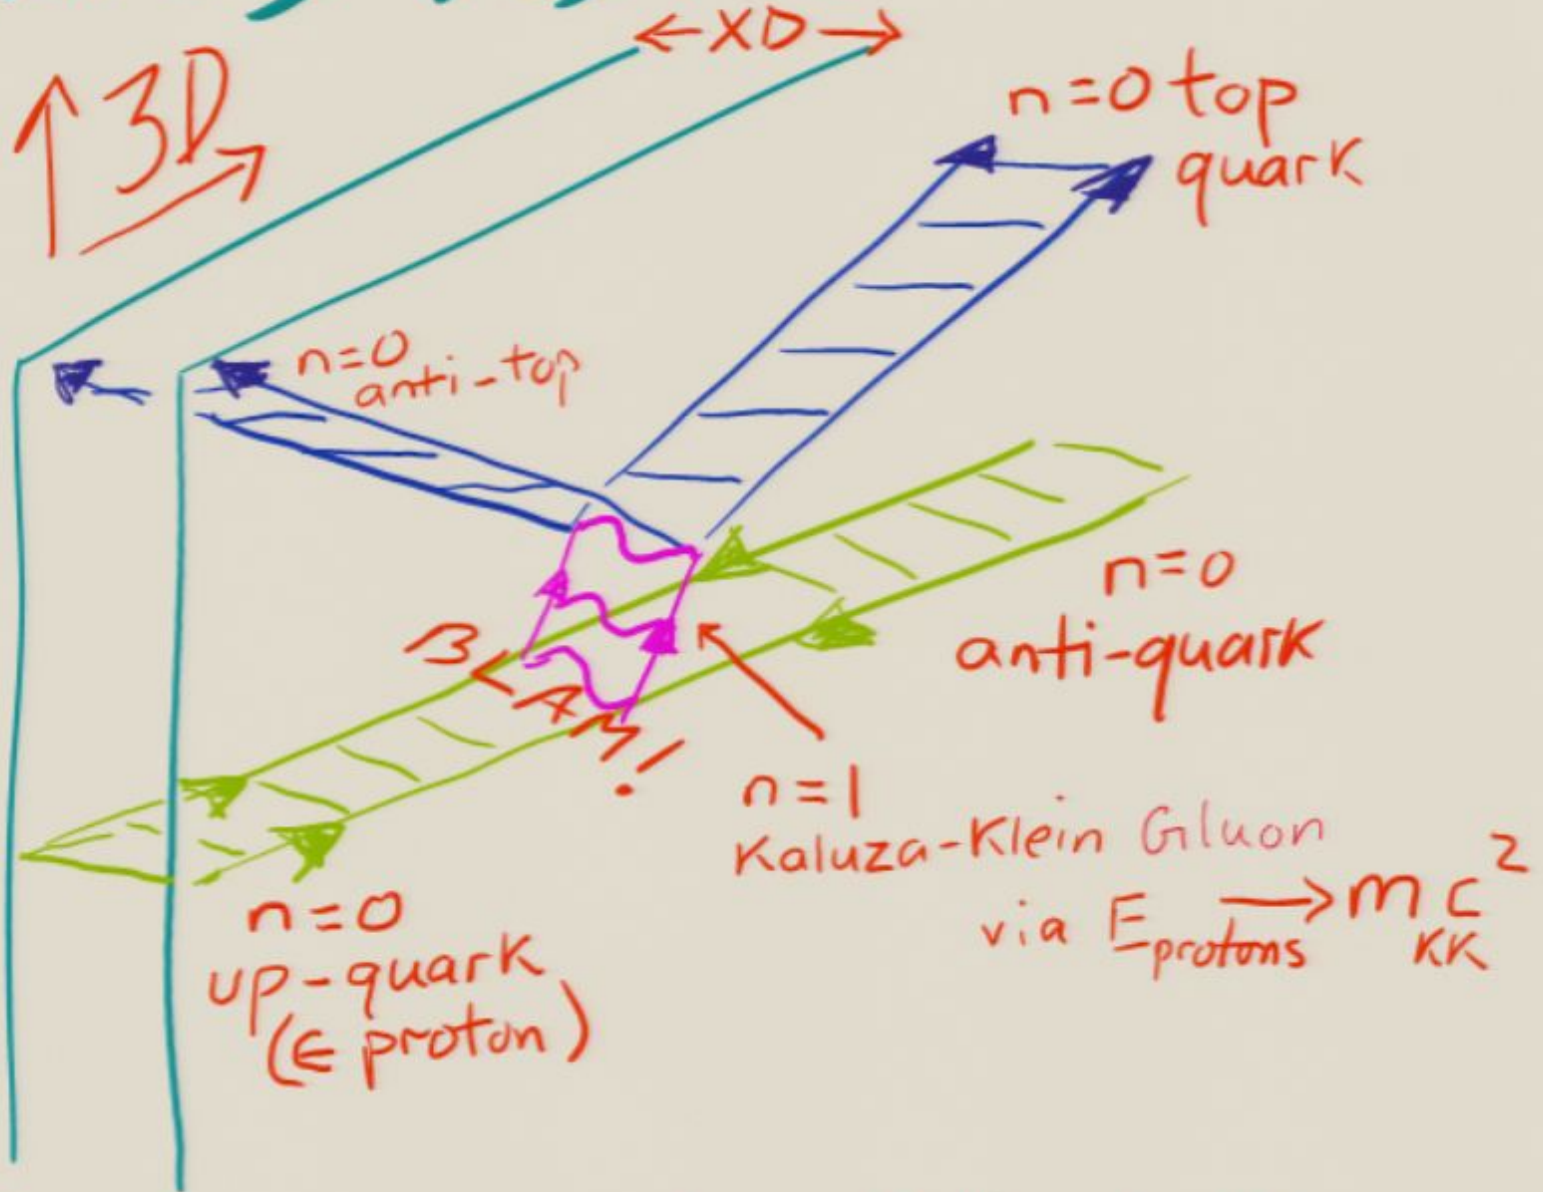 ←XD→
↑3D→
n=0 top
quark
n=0
anti-top
n=0
anti-quark
BAM!
n=1
Kaluza-Klein Gluon
via E protons → m KK c²
n=0
up-quark
(∈ proton)